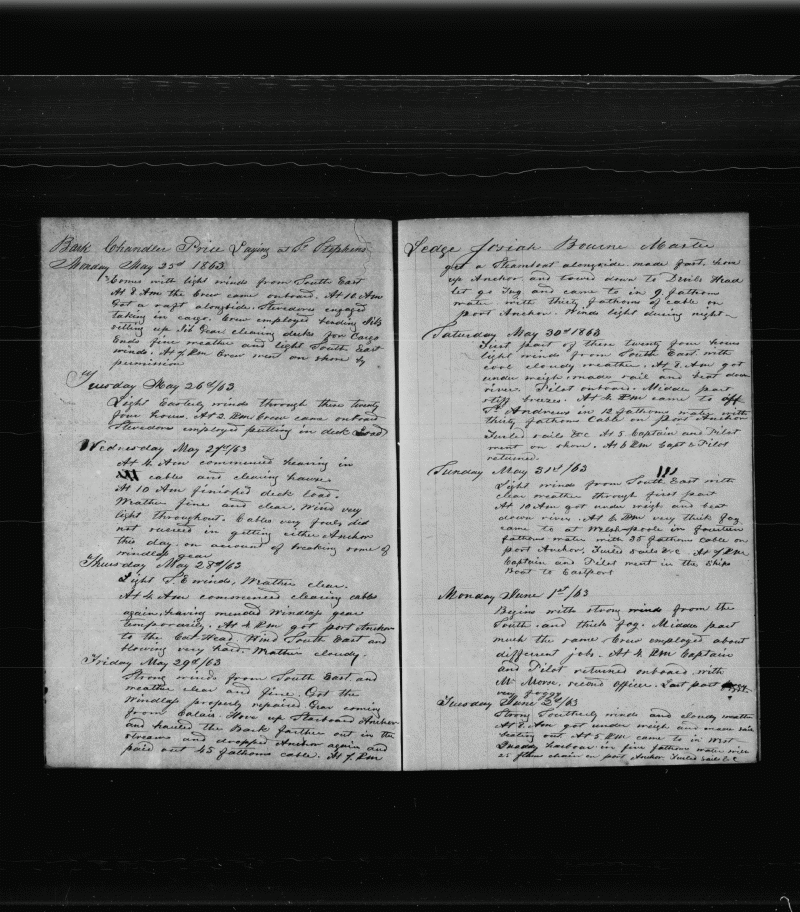 Bark Chandler Price Laying at St Stephens
Monday May 25d 1863
Comes with light winds from South East
At 8 Am the Crew came onboard. At 10 Am
Got a raft alongside. Stevedores engaged
taking in cargo. Crew employed bending Jibs
setting up Jib Gear clearing decks for Cargo
Ends fine weather and light South East
winds. At 7 Pm Crew went on shore by
permission
Tuesday May 26d/63
Light Easterly winds through these twenty
four hours. At 2 Pm Crew came onboard
Stevedores employed putting in deck Load
Wednesday May 27d/63
At 4 Am commenced heaving in
cables and clearing hawse
At 10 Am finished deck load.
Weather fine and clear. Wind very
light throughout. Cables very foul, did
not succeed in getting either Anchor
this day. on account of breaking some of
windlass gear
Thursday May 28d/63
Light S.E winds, Weather clear.
At 4 Am commenced clearing cables
again, having mended Windlass gear
temporarily. At 4 Pm got port Anchor
to the Cat Head. Wind South East and
blowing very hard. Weather cloudy
Friday May 29d/63
Strong winds from South East and
weather clear and fine. Got the
Windlass properly repaired. Gear coming
from Calais. Hove up Starboard Anchor
and hauled the Bark farther out in the
streams and dropped Anchor again and
paid out 45 fathoms cable. At 7 Pm
Ledge Josiah Bourne Master
got a Steamboat alongside made fast, hove
up Anchor and towed down to Devils Head
let go Tug and came to in 9 fathoms
water with thirty fathoms of cable on
port Anchor. Winds light during night
Saturday May 30d 1863
First part of these twenty four hours
light winds from South East with
cool cloudy weather. At 8 Am got
under weigh made sail and beat down
river. Pilot onboard. Middle part
stiff breeze. At 4 Pm came to off
St Andrews in 12 fathoms water with
thirty fathoms Cable on port Anchor
Furled sails &c At 5 Captain and Pilot
went on shore. At 6 Pm Capt & Pilot
returned.
Sunday May 31d/63
Light winds from South East with
clear weather through first part
At 10 Am got under weigh and beat
down river. At 6 Pm very thick fog
came to at Welsh-poole in fourteen
fathoms water with 35 fathoms Cable on
port Anchor. Furled sails &c. At 7 Pm
Captain and Pilot went in the Ships
Boat to Eastport
Monday June 1st/63
Begins with strong winds from the
South and thick fog. Middle part
much the same Crew employed about
different jobs. At 4 Pm Captain
and Pilot returned onboard with
Mr Morse, second officer. Last part
very foggy
Tuesday June 2d/63
Strong Southerly winds and cloudy weather
At 8 Am got under weigh and made sail
beating out At 5 Pm came to in West
Quoddy harbour in five fathoms water with
25 fthms chain on port Anchor Furled sails &c